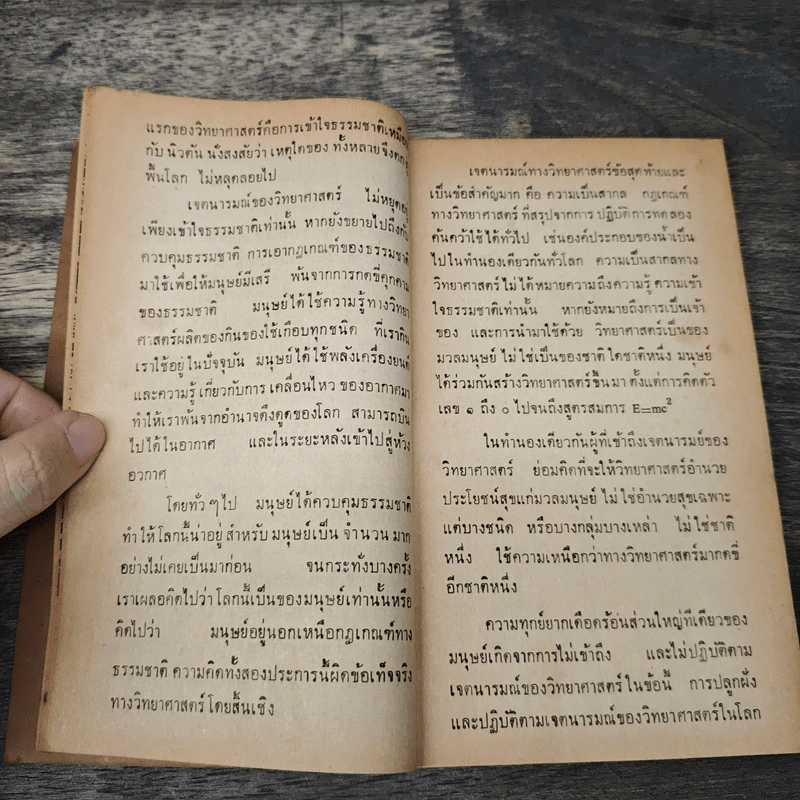 แรกของวิทยาศาสตร์คือการเข้าใจธรรมชาติเหมือน
กับ นิวตัน นั่งสงสัยว่า เหตุใดของ ทั้งหลาย จึงตกสู่
พื้นโลก ไม่หลุดลอยไป
เจตนารมณ์ของวิทยาศาสตร์ ไม่หยุดอยู่
เพียงเข้าใจธรรมชาติเท่านั้น หากยังขยายไปถึงการ
ควบคุมธรรมชาติ การเอากฎเกณฑ์ของธรรมชาติ
มาใช้เพื่อให้มนุษย์มีเสรี พ้นจากการกดขี่คุกคาม
ของธรรมชาติ มนุษย์ได้ใช้ความรู้ทางวิทยา
ศาสตร์ผลิตของกินของใช้เกือบทุกชนิด ที่เรากิน
เราใช้อยู่ในปัจจุบัน มนุษย์ได้ใช้พลังเครื่องยนต์
และความรู้ เกี่ยวกับการ เคลื่อนไหว ของอากาศมา
ทำให้เราพ้นจากอำนาจดึงดูดของโลก สามารถบิน
ไปได้ในอากาศ และในระยะหลังเข้าไปสู่ห้วง
อวกาศ
โดยทั่วๆไป มนุษย์ได้ควบคุมธรรมชาติ
ทำให้โลกนี้น่าอยู่ สำหรับ มนุษย์เป็น จำนวน มาก
อย่างไม่เคยเป็นมาก่อน จนกระทั่งบางครั้ง
เราเผลอคิดไปว่า โลกนี้เป็นของมนุษย์เท่านั้นหรือ
คิดไปว่า มนุษย์อยู่นอกเหนือกฎเกณฑ์ทาง
ธรรมชาติ ความคิดทั้งสองประการนี้ผิดข้อเท็จจริง
ทางวิทยาศาสตร์ โดยสิ้นเชิง
เจตนารมณ์ทางวิทยาศาสตร์ข้อสุดท้ายและ
เป็นข้อสำคัญมาก คือ ความเป็นสากล กฎเกณฑ์
ทางวิทยาศาสตร์ ที่สรุปจากการ ปฏิบัติการทดลอง
ค้นคว้าใช้ได้ทั่วไป เช่นองค์ประกอบของน้ำเป็น
ไปในทำนองเดียวกันทั่วโลก ความเป็นสากลทาง
วิทยาศาสตร์ ไม่ได้หมายความถึงความรู้ ความเข้า
ใจธรรมชาติเท่านั้น หากยังหมายถึงการเป็นเจ้า
ของ และการนำมาใช้ด้วย วิทยาศาสตร์เป็นของ
มวลมนุษย์ ไม่ใช่เป็นของชาติ ใดชาติหนึ่ง มนุษย์
ได้ร่วมกันสร้างวิทยาศาสตร์ขึ้นมา ตั้งแต่การคิดตัว
เลข ๑ ถึง ๐ ไปจนถึงสูตรสมการ E=mc²
ในทำนองเดียวกันผู้ที่เข้าถึงเจตนารมย์ของ
วิทยาศาสตร์ ย่อมคิดที่จะให้วิทยาศาสตร์อำนวย
ประโยชน์สุขแก่มวลมนุษย์ ไม่ใช่อำนวยสุขเฉพาะ
แต่บางชนิด หรือบางกลุ่มบางเหล่า ไม่ใช่ชาติ
หนึ่ง ใช้ความเหนือกว่าทางวิทยาศาสตร์มากดขี่
อีกชาติหนึ่ง
ความทุกข์ยากเดือดร้อนส่วนใหญ่ทีเดียวของ
มนุษย์เกิดจากการไม่เข้าถึง และไม่ปฏิบัติตาม
เจตนารมณ์ของวิทยาศาสตร์ ในข้อนี้ การปลูกฝัง
และปฏิบัติตามเจตนารมณ์ของวิทยาศาสตร์ในโลก